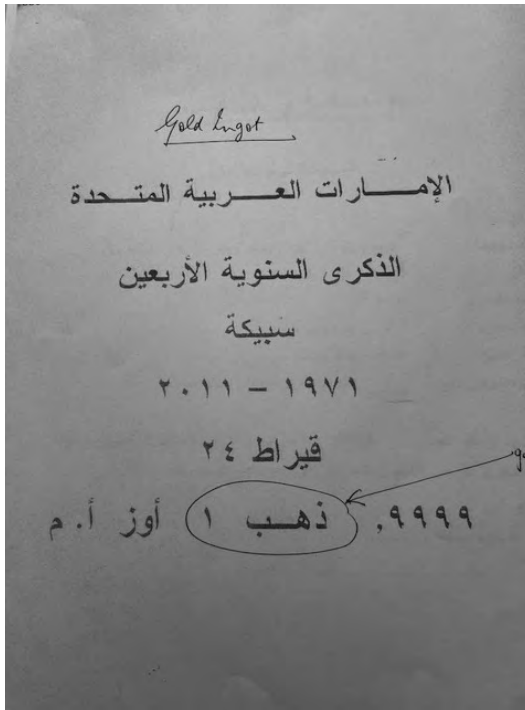 Gold Ingot
الإمـــــارات العـــربية المتـــحدة
الذكرى السنوية الأربعين
سبيكة
١٩٧١ – ٢٠١١
قيراط ٢٤
٩٩٩٩, ذهـــب ١ أوز أ. م